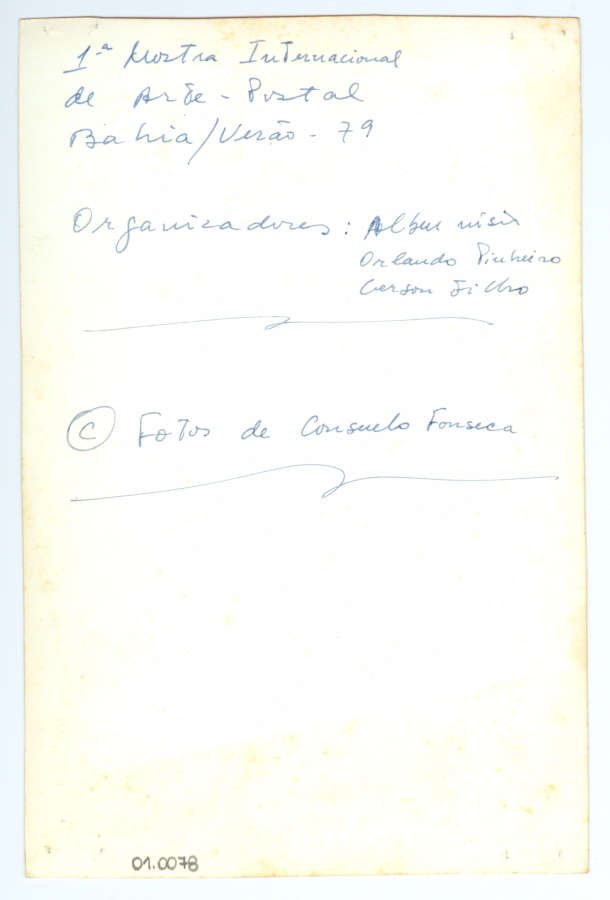 1ª Mostra Internacional
de Arte-Postal
Bahia/Verão - 79
Organizadores:
Orlando Pinheiro
Gerson Filho
© Fotos de Consuelo Fonseca
01.0078